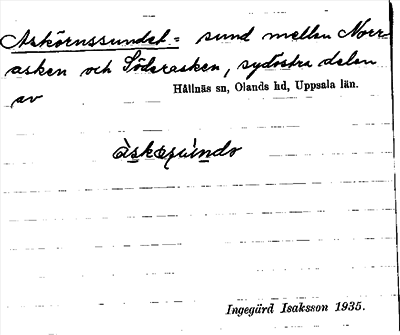 Askörnssundet = sund mellan Norr-
asken och Söderasken, sydöstra delen
av
Hållnäs sn, Olands hd, Uppsala län.
Ingegärd Isaksson 1935.